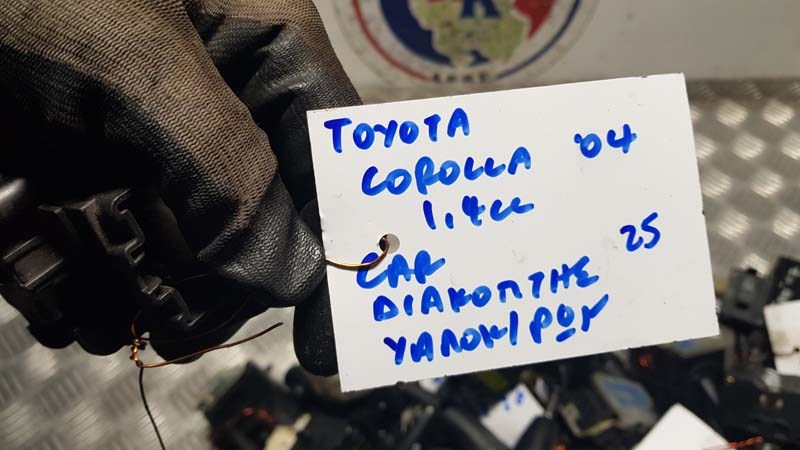 TOYOTA
COROLLA '04
1.4cc
CAR 25
ΔΙΑΚΟΠΤΗΣ
ΥΑΛΟΚ/ΡΩΝ